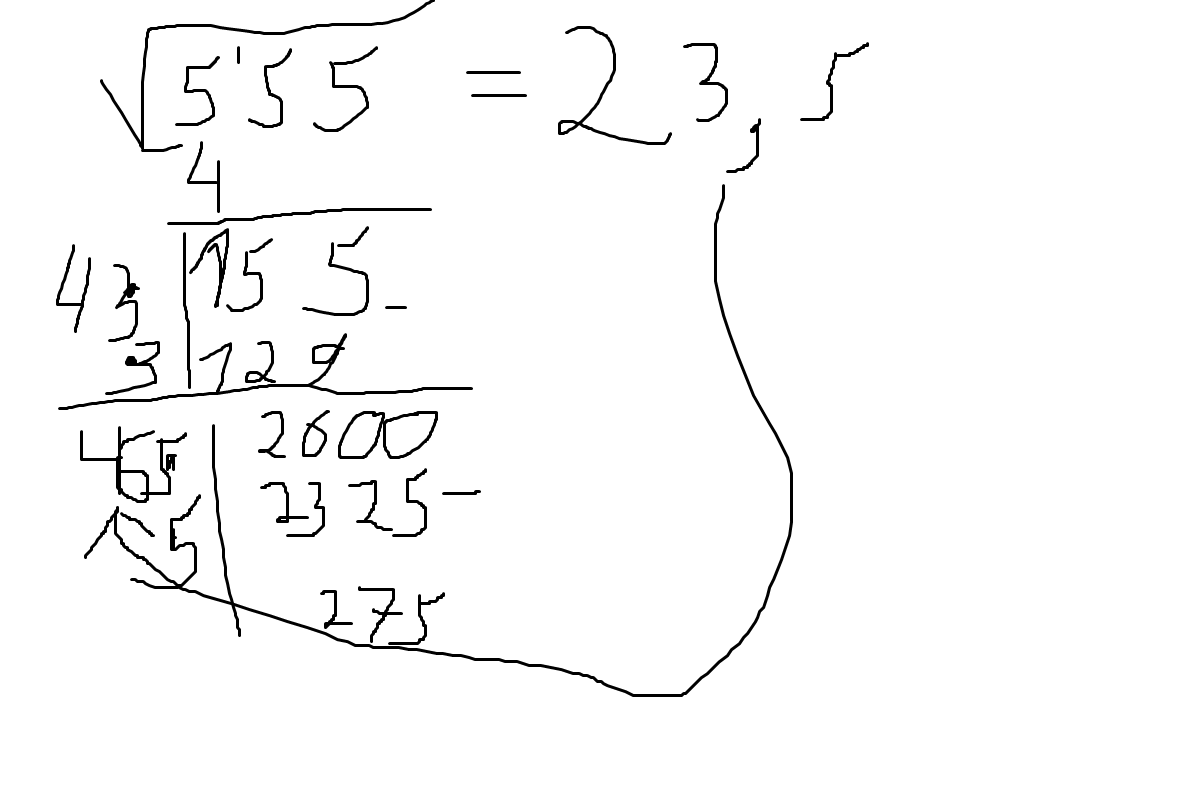 √5'55 = 23,5
4
43 | 155 -
3 | 129
465 | 2600
5 | 2325 -
275